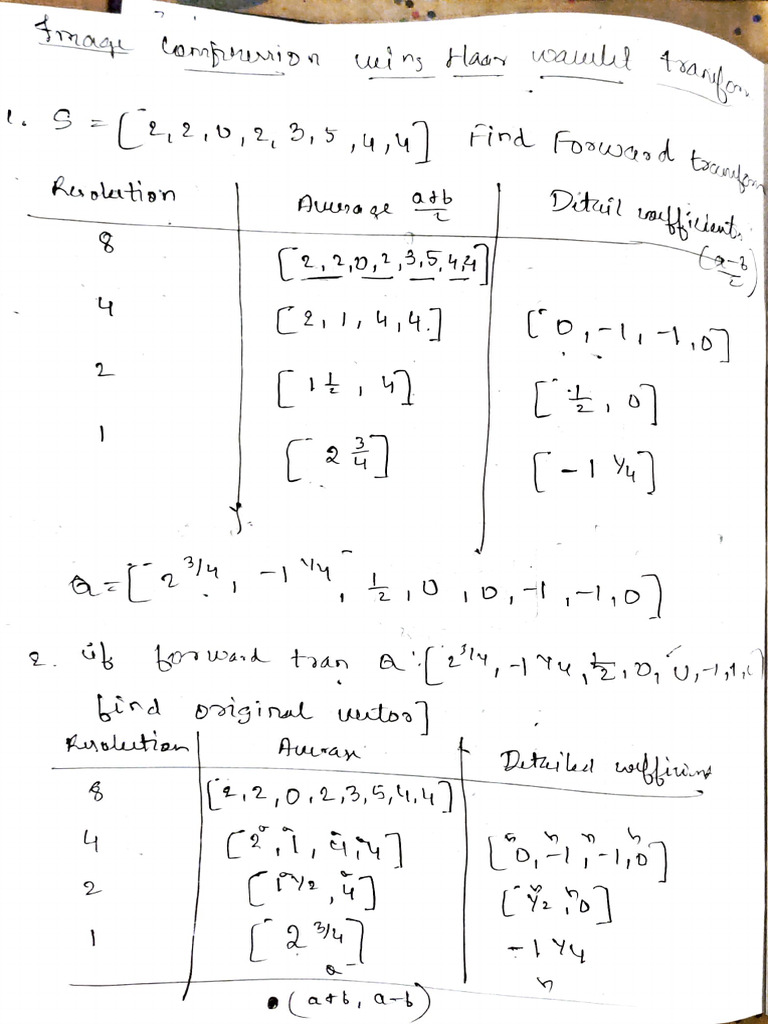 Image Compression using Haar wavelet transfor
1. S = [2, 2, 0, 2, 3, 5, 4, 4] Find Forward transfor
Resolution Average a+b/2 Detail coefficients (a-b/2)
8 [2, 2, 0, 2, 3, 5, 4, 4]
4 [2, 1, 4, 4] [0, -1, -1, 0]
2 [1 1/2, 4] [1/2, 0]
1 [2 3/4] [-1 1/4]
Q = [2 3/4, -1 1/4, 1/2, 0, 0, -1, -1, 0]
2. if forward tran Q: [2 3/4, -1 1/4, 1/2, 0, 0, -1, 1,
find original vector]
Resolution Average Detailed coefficient
8 [2, 2, 0, 2, 3, 5, 4, 4]
4 [2, 1, 4, 4] [0, -1, -1, 0]
2 [1 1/2, 4] [1/2, 0]
1 [2 3/4] -1 1/4
a
(a+b, a-b)